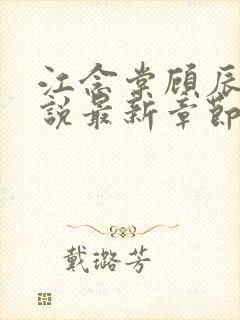 江念棠顾辰
説最新章節
戴璐芳